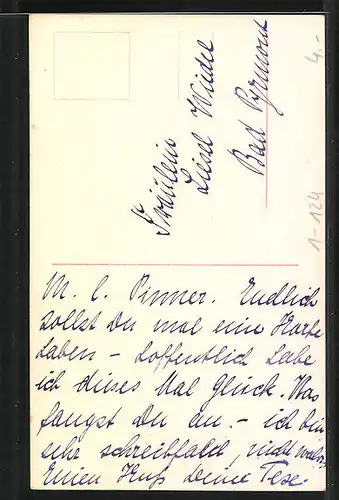 Fräulein
Liesel
Bad Pyrmont
4.-
1-124
M. l. Endlich
sollst Du mal eine Karte
haben – hoffentlich habe
ich dieses Mal Glück. Was
fangst Du an. – ich bin
sehr schreibfaul, nicht
Einen Kuß Deine